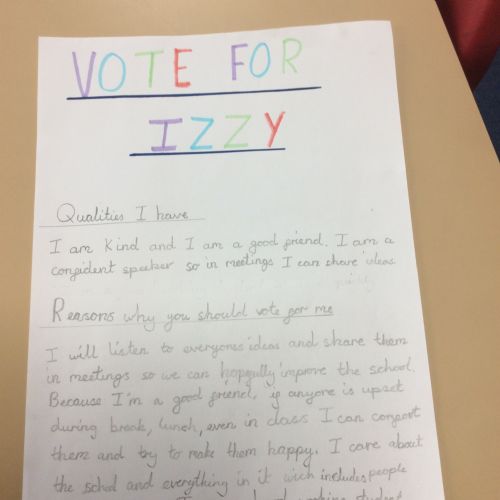 VOTE FOR
IZZY
Qualities I have
I am Kind and I am a good friend. I am a
confident speaker so in meetings I can share ideas.
Reasons why you should vote for me
I will listen to everyones ideas and share them
in meetings so we can hopefully improve the school.
Because I'm a good friend, if anyone is upset
during break, lunch, even in class I can comfort
them and try to make them happy. I care about
the school and everything in it wich includes people